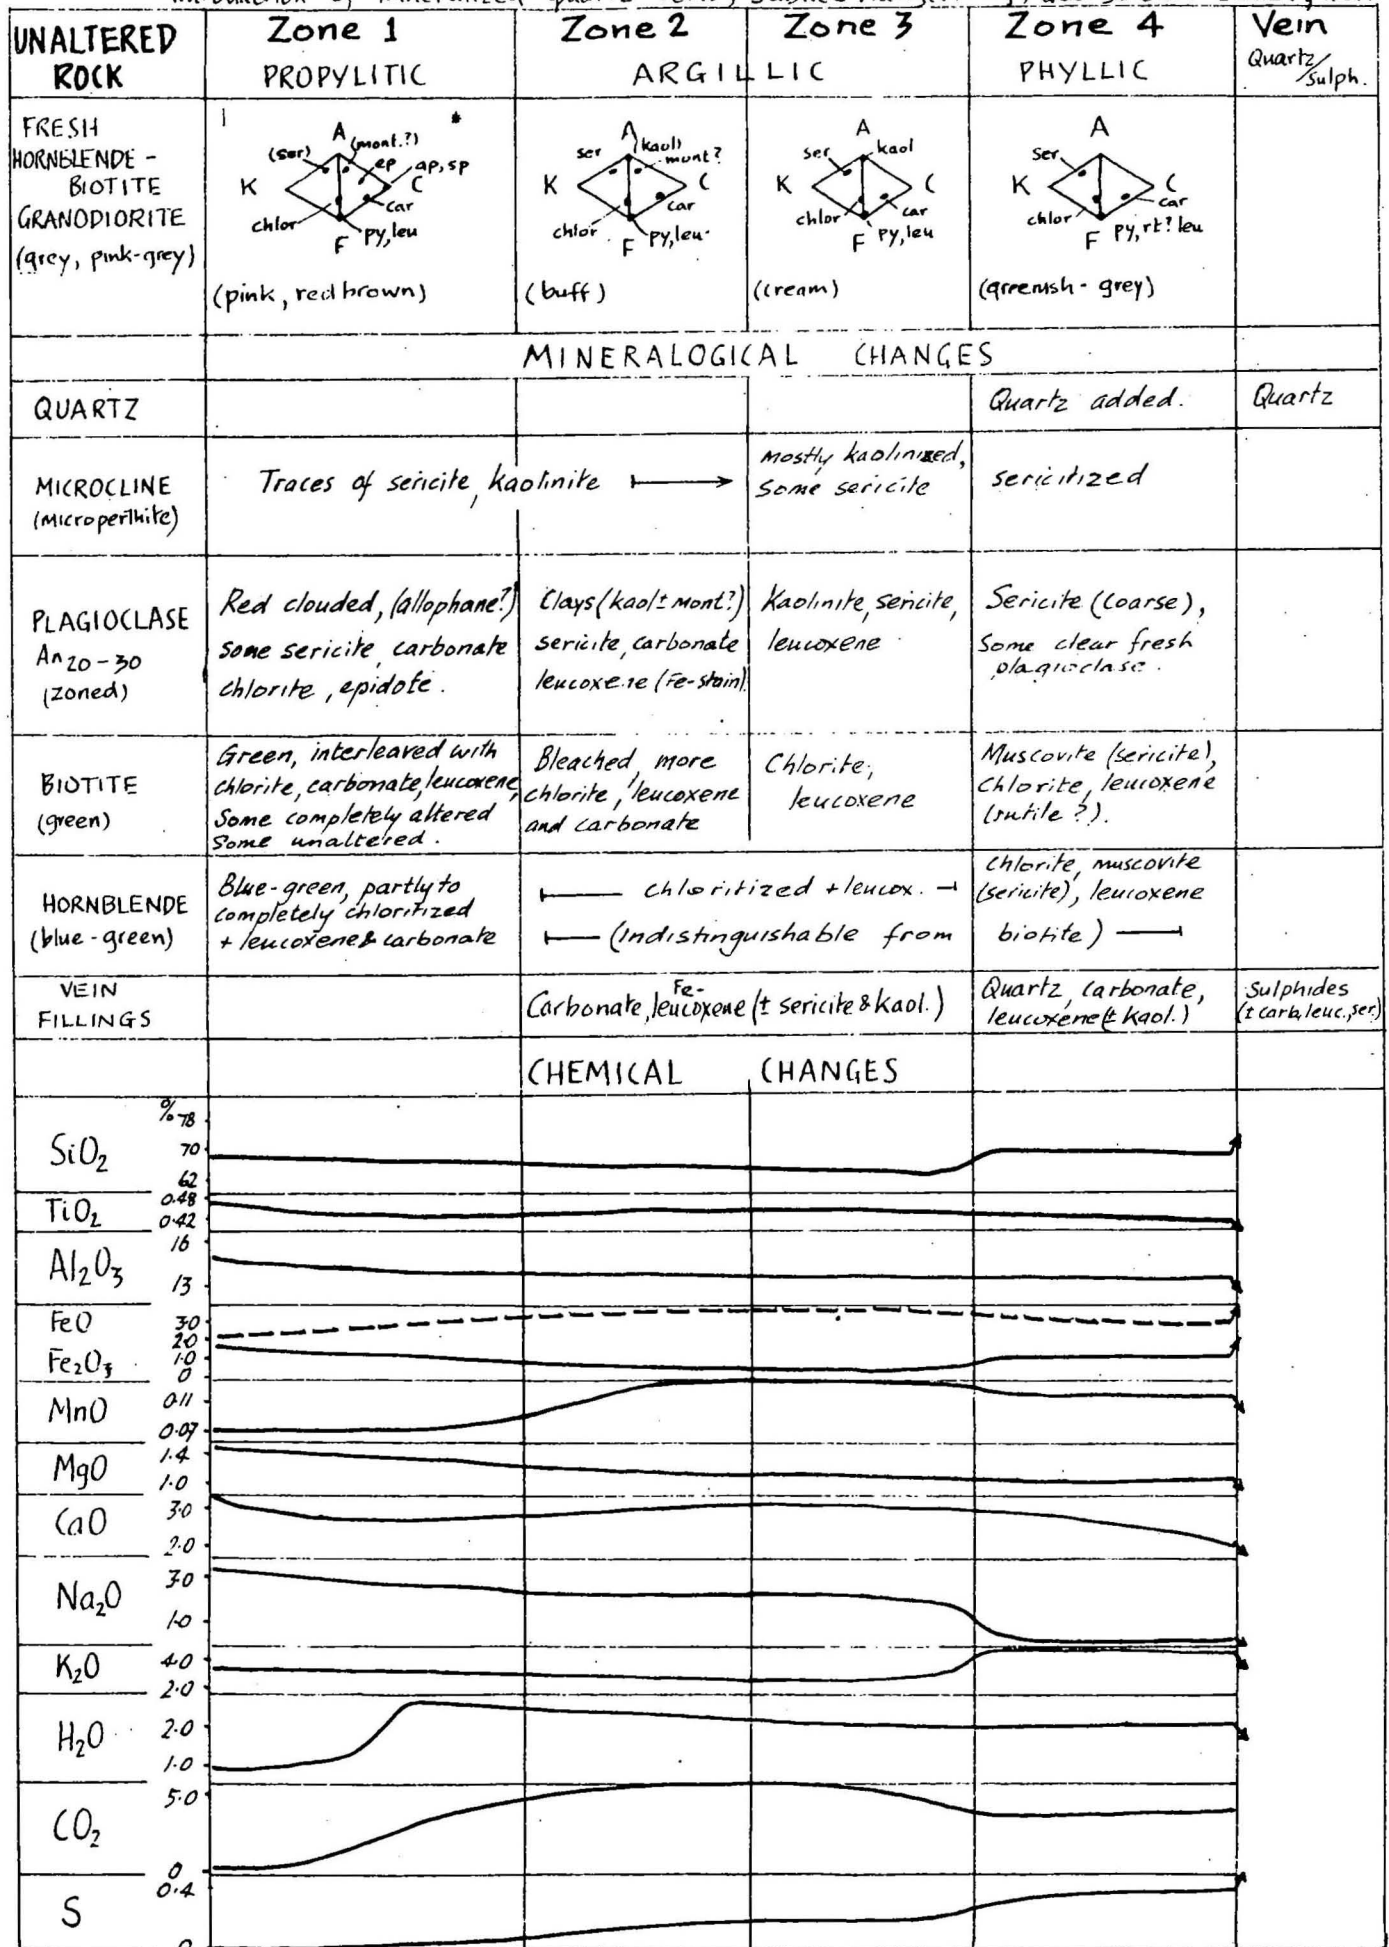 UNALTERED ROCK
Zone 1
PROPYLITIC
Zone 2
Zone 3
ARGILLIC
Zone 4
PHYLLIC
Vein
Quartz/Sulph.
FRESH
HORNBLENDE -
BIOTITE
GRANODIORITE
(grey, pink-grey)
A
(mont.?)
*
(ser)
ep
ap, sp
K
C
car
chlor
F
py, leu
(pink, red brown)
A
(kaol)
ser
mont?
K
C
car
chlor
F
py, leu
(buff)
A
ser
kaol
K
C
chlor
car
F
py, leu
(cream)
A
ser
K
C
car
chlor
F
py, rt? leu
(greenish - grey)
MINERALOGICAL CHANGES
QUARTZ
Quartz added.
Quartz
MICROCLINE
(microperthite)
Traces of sericite, kaolinite
mostly kaolinized,
some sericite
sericitized
PLAGIOCLASE
An 20-30
(zoned)
Red clouded, (allophane?)
some sericite, carbonate
chlorite, epidote.
Clays (kaol ± mont?)
sericite, carbonate
leucoxene (Fe-stain)
Kaolinite, sericite,
leucoxene
Sericite (coarse),
Some clear fresh
plagioclase.
BIOTITE
(green)
Green, interleaved with
chlorite, carbonate, leucoxene,
Some completely altered
Some unaltered.
Bleached, more
chlorite, leucoxene
and carbonate
Chlorite,
leucoxene
Muscovite (sericite),
Chlorite, leucoxene
(rutile ?).
HORNBLENDE
(blue-green)
Blue-green, partly to
completely chloritized
+ leucoxene & carbonate
chloritized + leucox.
(Indistinguishable from biotite)
Chlorite, muscovite
(sericite), leucoxene
VEIN
FILLINGS
Carbonate, Fe-leucoxene (± sericite & kaol.)
Quartz, carbonate,
leucoxene (± kaol.)
Sulphides
(± carb, leuc., ser)
CHEMICAL CHANGES
SiO2
% 78
70
62
TiO2
0.48
0.42
Al2O3
16
13
FeO
3.0
2.0
Fe2O3
1.0
0
MnO
0.11
0.07
MgO
1.4
1.0
CaO
3.0
2.0
Na2O
3.0
1.0
K2O
4.0
2.0
H2O
2.0
1.0
CO2
5.0
0
S
0.4
0